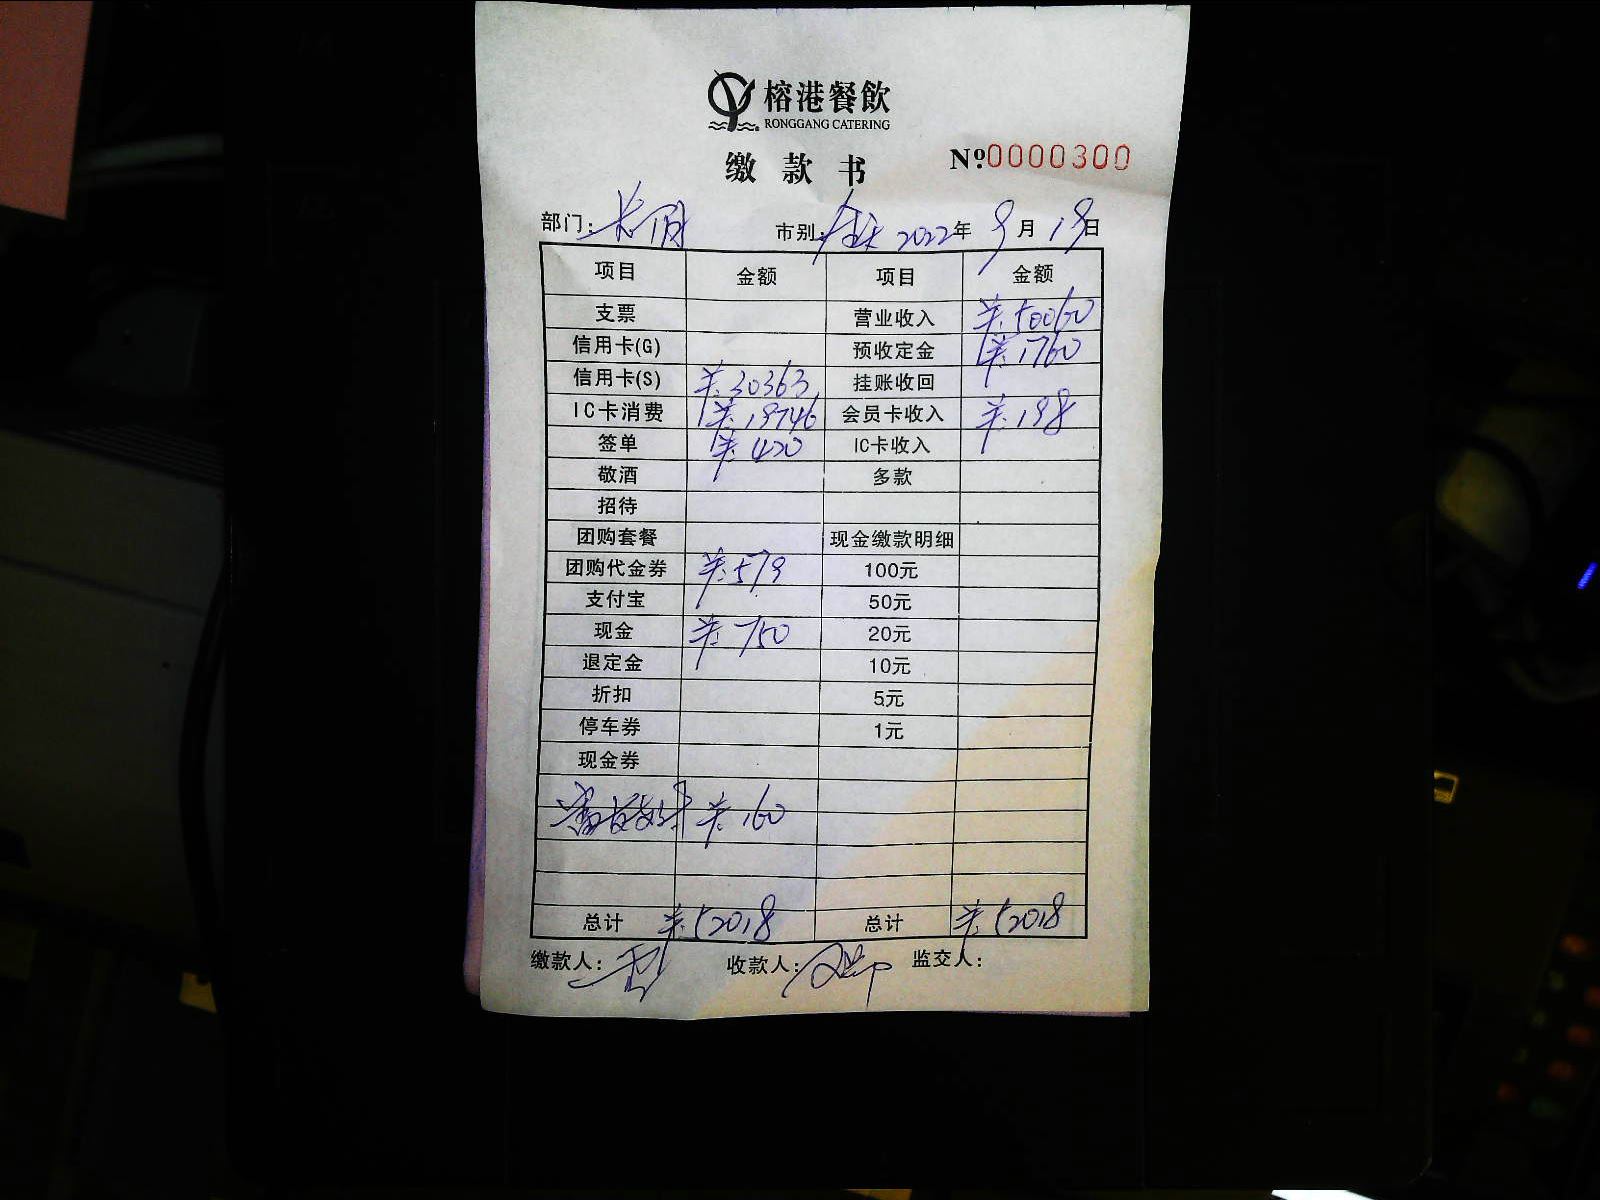 榕港餐飲
RONGGANG CATERING
缴款书
Nº0000300
部门: 市别:全天 2022年9月19日
项目 金额 项目 金额
支票 营业收入 ¥50060
信用卡(G) 预收定金 ¥1760
信用卡(S) ¥30363 挂账收回
IC卡消费 ¥19746 会员卡收入 ¥198
签单 ¥420 IC卡收入
敬酒 多款
招待
团购套餐 现金缴款明细
团购代金券 ¥579 100元
支付宝 50元
现金 ¥750 20元
退定金 10元
折扣 5元
停车券 1元
现金券
¥160
总计 ¥52018 总计 ¥52018
缴款人: 收款人: 监交人: